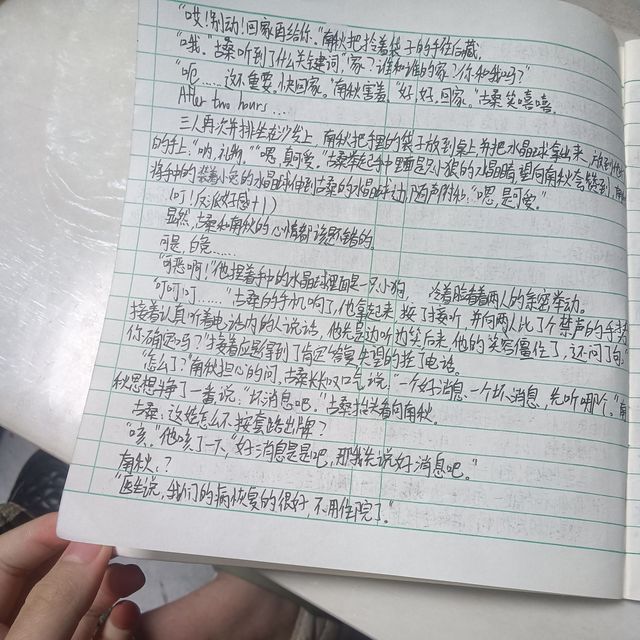 "哎！别动！回家再给你。"南秋把拎着袋子的手往后藏。
"哦。"古桑听到了什么关键词"家？谁和谁的家？你和我吗？"
"呃……这不重要，快回家。"南秋害羞。"好，好，回家。"古桑笑嘻嘻。
After two hours...
三人再次并排坐在沙发上，南秋把手里的袋子放到桌上并把水晶球拿出来，放到
的手上。"呐，礼物。""嗯，真可爱。"古桑拿起手中里面是只小狼的水晶球 望向南秋
将手中的装着小兔的水晶球 到古桑的水晶球 "嗯，是可爱。"
（叮！友好感+1）
显然，古桑和南秋的心情都该还错的
可是 白
"可恶啊！"他捏着手中的水晶球里面是一只小狗， 冷着脸看着两人的亲密举动。
"叮叮叮……"古桑的手机响了，他拿起来 按了接听，并向两人比了个禁声的手
接着认真听着电话内的人说话，他先是边听边笑后来 他的笑容僵住了，还问了句"
你确定吗？"接着应是得到了肯定答复失望的挂了电话。
"怎么了？"南秋担心的问。古桑长叹口气说："一个好消息、一个坏消息，先听哪个。"南
秋思想斗争了一番说："坏消息吧。"古桑 着向南秋。
古桑：这姓怎么不按套路出牌？
"咳。"他咳了一下，"好消息是是吧，那我先说好消息吧。"
南秋：？
"医生说，我们的病恢复的很好，不用住院了。"